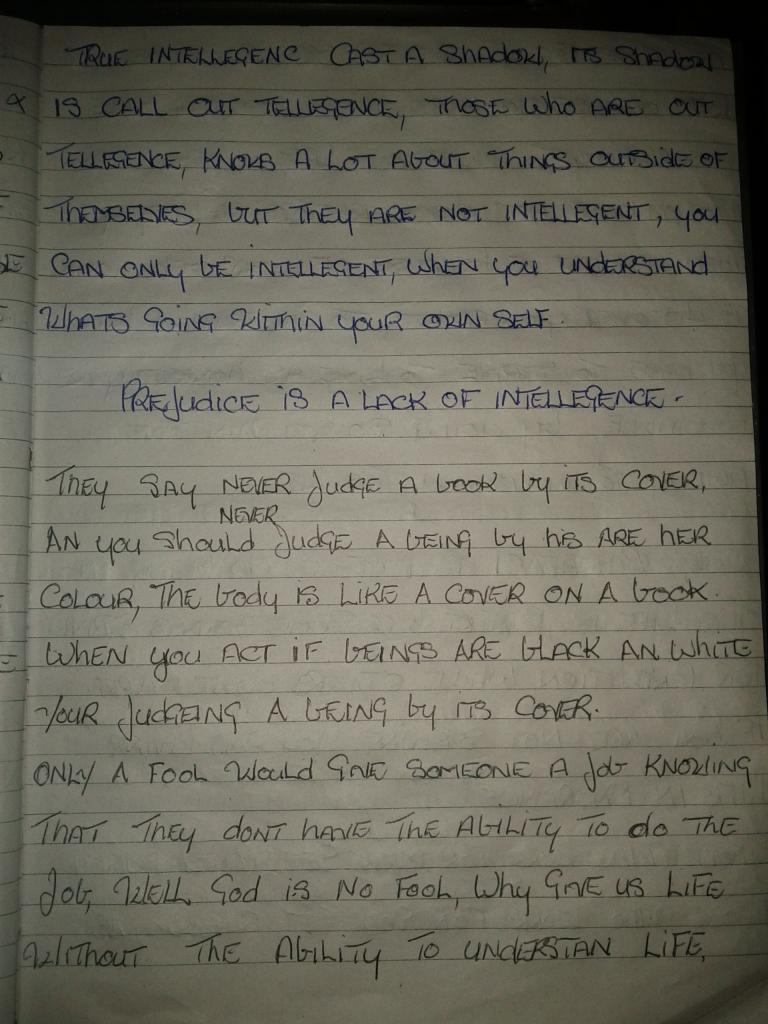 TRUE INTELLEGENC CAST A ShADOW, ITS ShADOW
IS CALL OUT TELLEGENCE, THOSE Who ARE OUT
TELLEGENCE, KNOWS A LOT AbOUT ThINGS OUTSIdE OF
ThEMSELVES, bUT ThEy ARE NOT INTELLEGENT, you
CAN ONLY bE INTELLEGENT, WhEN you UNDERSTAND
WhATS GOING WITHIN yOUR OWN SELF.
PREJudICE iS A LACK OF INTELLEGENCE.
ThEy SAy NEVER JudgE A bOOK by iTS COVER,
NEVER
AN you Should JudgE A bEING by his ARE hER
COLOUR, ThE body IS LIKE A COVER ON A bOOK.
WhEN you ACT iF bEINGS ARE bLACK AN WhiTE
yOUR JudgEING A bEING by ITS COVER.
ONLY A FOOL Would GIVE SOMEONE A Job KNOWING
ThAT ThEy dONT hAVE ThE AbILITY TO do ThE
Job, WELL God is No FooL, Why GIVE US LiFE
WiThouT ThE AbiLiTy TO UNDERSTAN LiFE,